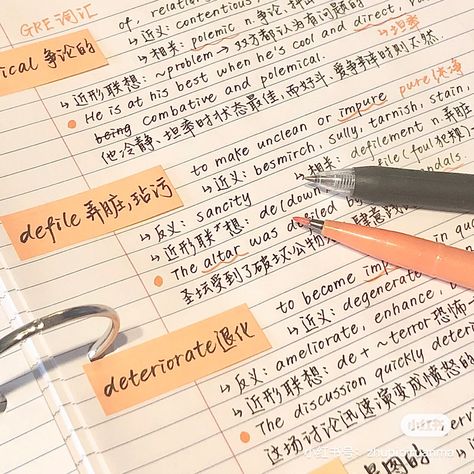 GRE词汇
of, relation
→近义: contentious
ical 争论的
→相关: polemic n.争论
→近形联想: ~problem → 双方都认为有问题的
He is at his best when he's cool and direct,
→坦率
being combative and polemical.
他冷静、坦率时状态最佳,而好斗、爱争辩时则不然.
to make unclean or impure pure纯净
→近义: besmirch, sully, tarnish, stain
→相关: defilement n.弄脏
defile 弄脏,玷污
→反义: sancity
→近形联想: de(down
file(foul 犯规
The altar was defiled by
圣坛受到了破坏公物
to become im
in qu
→近义: degenerate
deteriorate 退化
→反义: ameliorate, enhance,
→近形联想: de + ~terror恐怖
The discussion quickly deter
这场讨论迅速演变成愤怒的
小红书
小红书号: